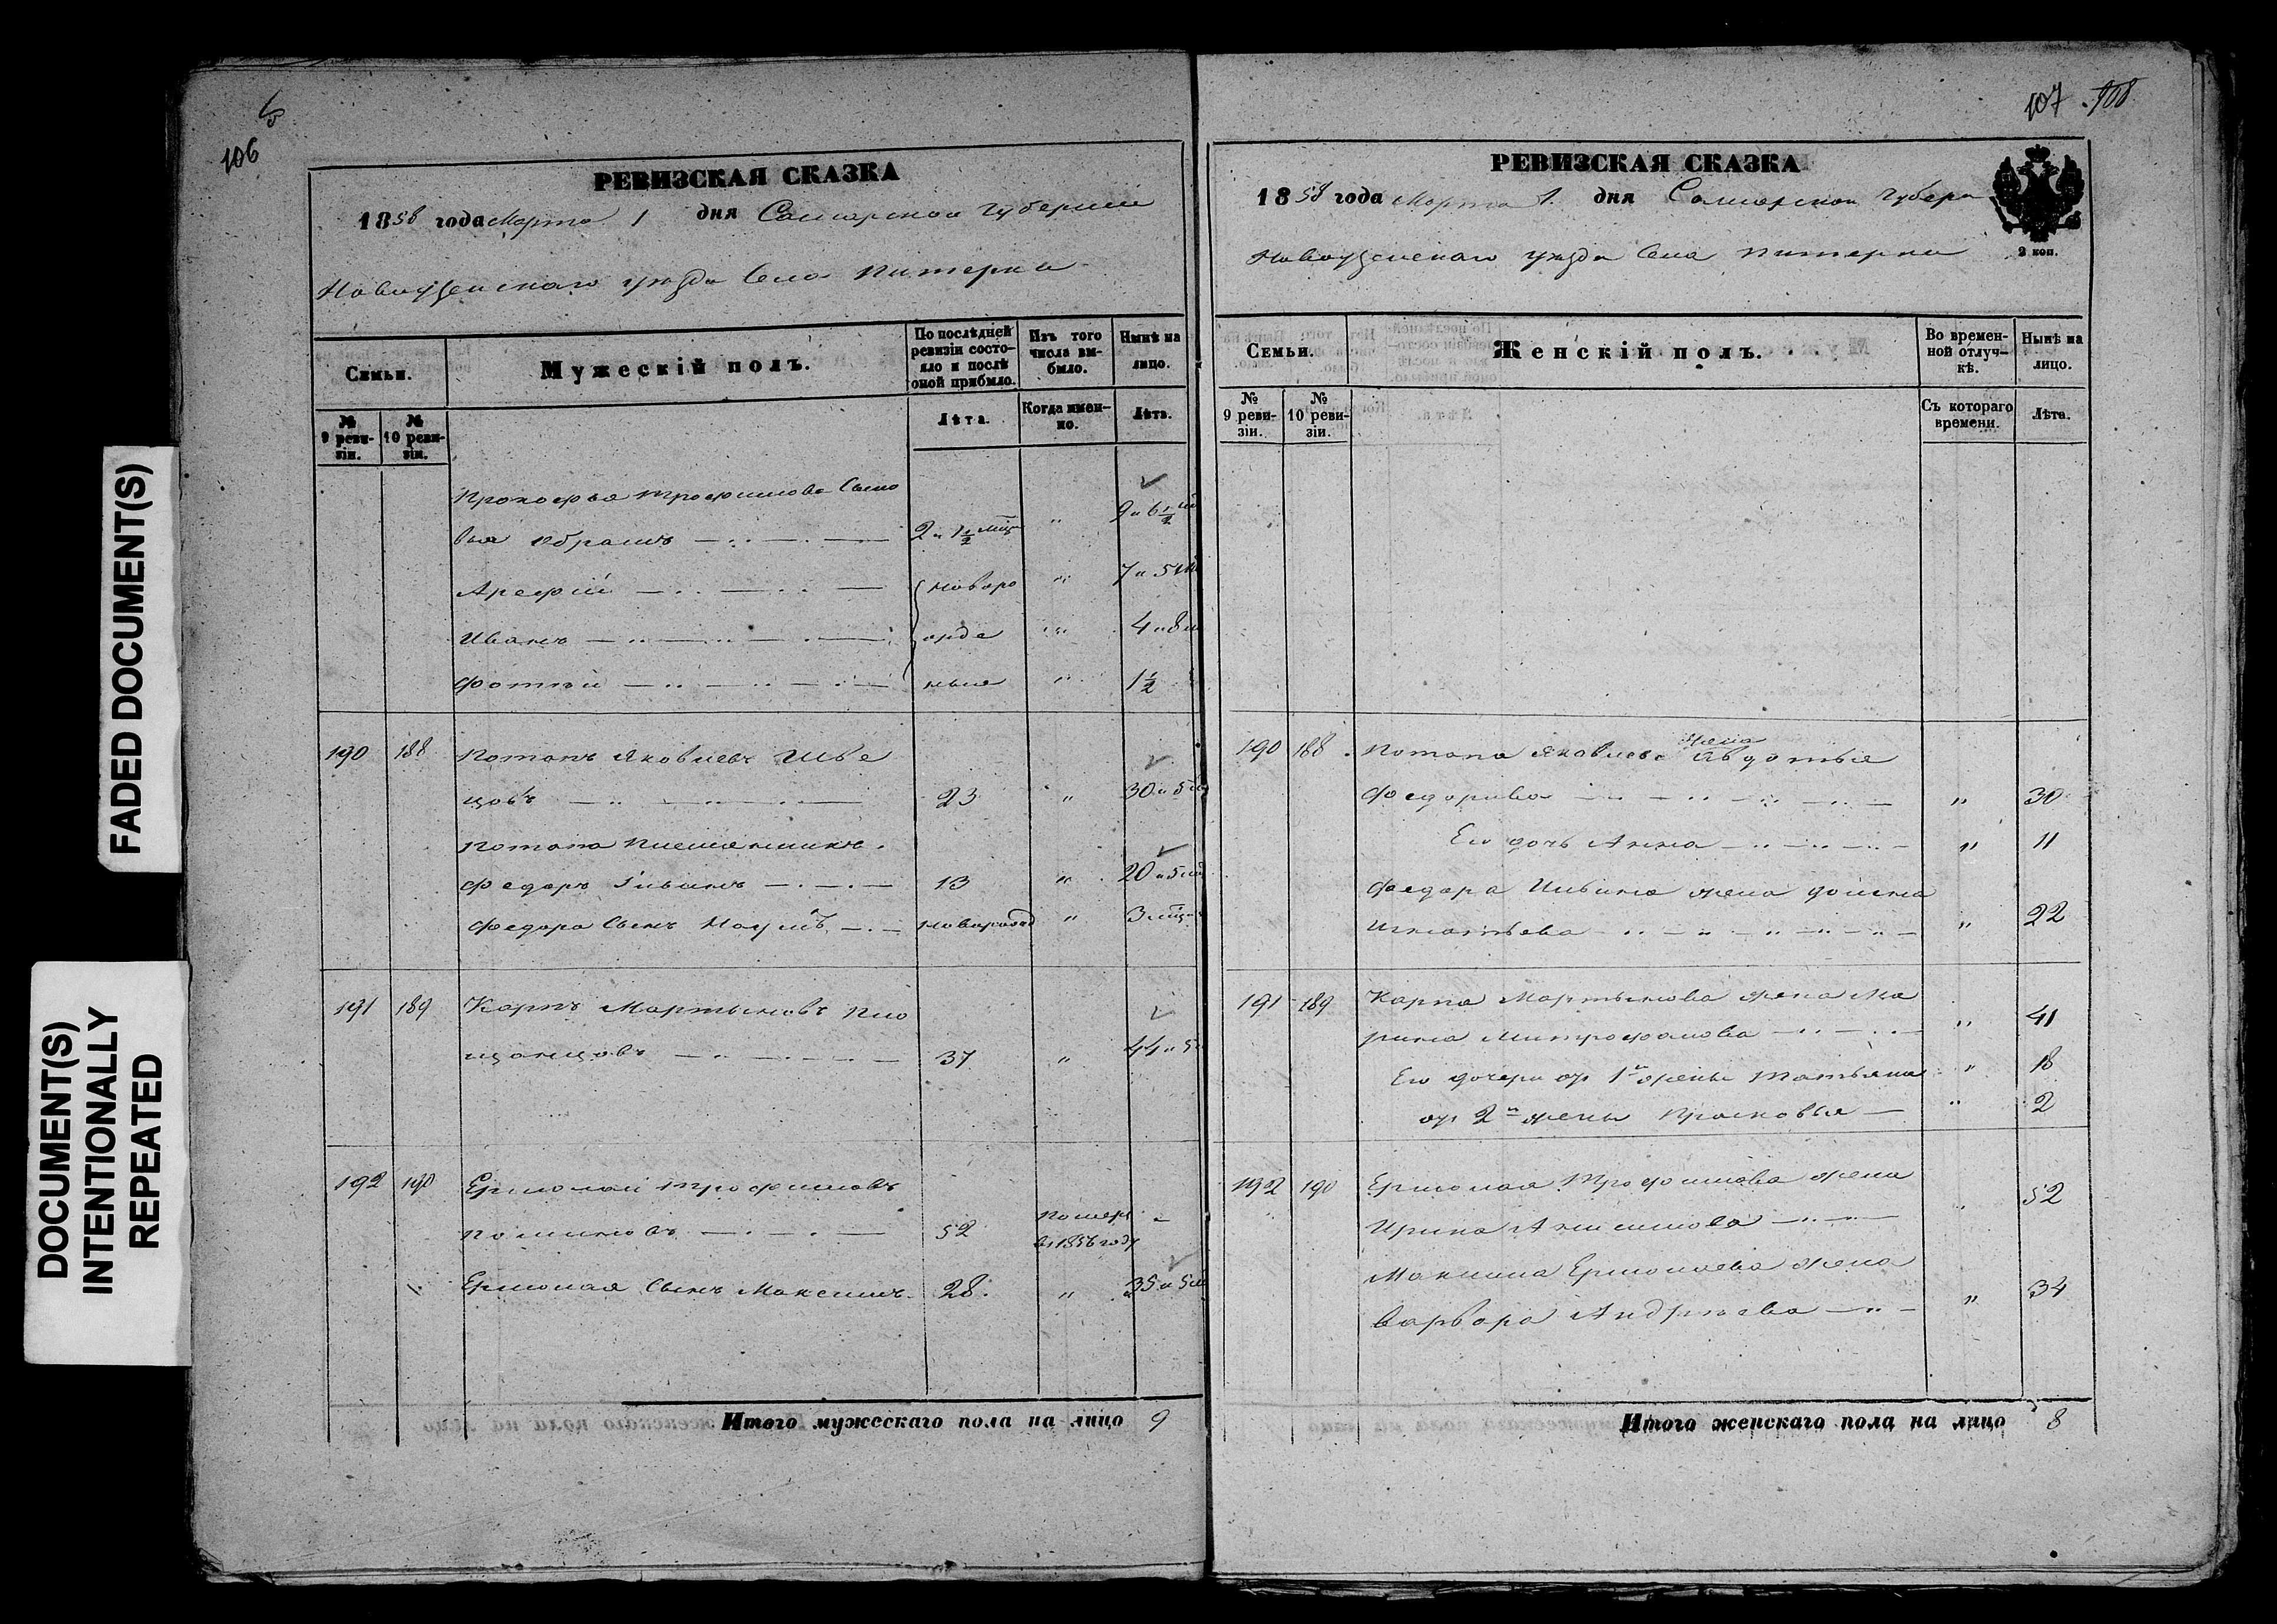 FADED DOCUMENT(S)
DOCUMENT(S)
INTENTIONALLY
REPEATED
106
РЕВИЗСКАЯ СКАЗКА
1858 года Марта 1 дня Самарской Губернии
Новоузенскаго уезда Села Питерки
Семьи.
Мужескій полъ.
По послѣдней ревизіи состояло и послѣ оной прибыло.
Изъ того числа выбыло.
Нынѣ на лицо.
№ 9 ревизіи.
№ 10 ревизіи.
Лѣта.
Когда именно.
Лѣта.
Прокофья Трофимова Сыно
вья Абрамъ 2 и 1½ мѣц " 9 и 6½
Арефій новоро " 7 и 5
Иванъ жде " 4 и 8
Фотій ные " 1½
190 188 Потапъ Яковлевъ Шве
цовъ 23 " 30 и 5
Потапа племянникъ
Федоръ 13 " 20 и 5
Федора Сынъ Наумъ новорожд " 3 мѣц
191 189 Карпъ Мартыновъ
37 " 44 и 5
192 190 Ермолай Трофимовъ
52 померъ в 1856 году -
Ермолая Сынъ Максимъ 28 " 35 и 5
Итого мужескаго пола на лицо 9
107 108
РЕВИЗСКАЯ СКАЗКА
1858 года Марта 1 дня Самарской Губерн
Новоузенскаго уезда Села Питерки
2 коп.
Семьи.
Женскій полъ.
Во временной отлучкѣ.
Нынѣ на лицо.
№ 9 ревизіи.
№ 10 ревизіи.
Съ котораго времени.
Лѣта.
190 188 Потапа Яковлева жена Авдотья
Федорова " 30
Его дочь Анна " 11
Федора жена Домна
Игнатьева " 22
191 189 Карпа Мартынова жена Ма
рина Митрофанова " 41
Его дочери от 1й жены Татьяна " 18
от 2й жены Прасковья " 2
192 190 Ермолая Трофимова жена
Ирина Анисимова 52
Максима Ермолаева жена
Варвара Андреева " 34
Итого женскаго пола на лицо 8